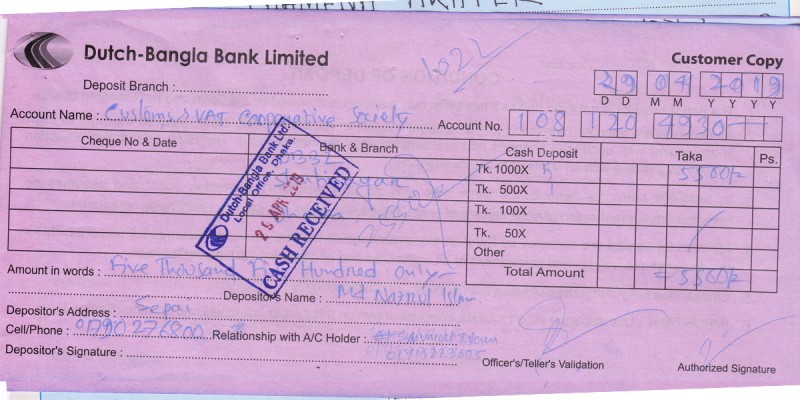 Dutch-Bangla Bank Limited
1022
Customer Copy
Deposit Branch :
29 04 2019
D D M M Y Y Y Y
Account Name : Customs, VAT Cooperative Society Account No. 108 120 4930
Cheque No & Date Bank & Branch Cash Deposit Taka Ps.
Tk. 1000X 5 5500/-
Tk. 500X 1
Tk. 100X
Tk. 50X
Other
Total Amount = 5500/-
Dutch-Bangla Bank Ltd.
Local Office, Dhaka.
CASH RECEIVED
Amount in words : Five Thousand Five Hundred only
Depositor's Name : Md Nazrul Islam
Depositor's Address : Sepai
Cell/Phone : Relationship with A/C Holder :
Depositor's Signature :
Officer's/Teller's Validation
Authorized Signature